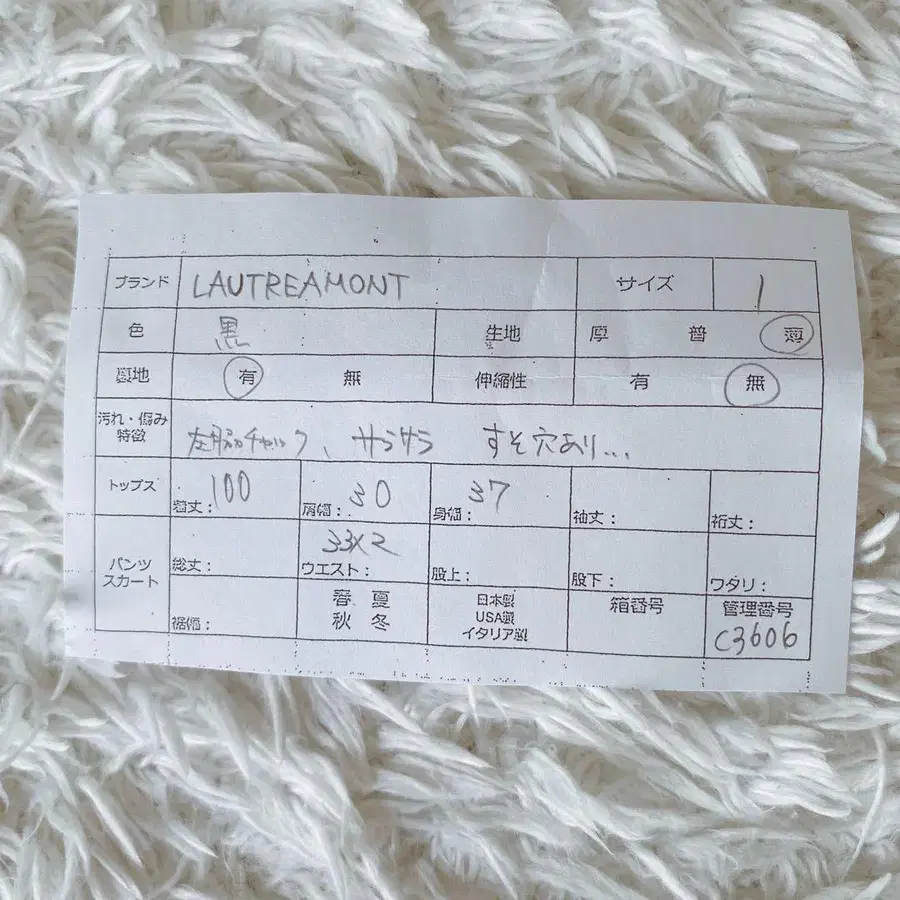 ブランド LAUTREAMONT サイズ 1
色 黒 生地 厚 普 薄
裏地 有 無 伸縮性 有 無
汚れ・傷み
特徴 左脇チャック、サラサラ すそ穴あり...
トップス 着丈： 100 肩幅： 30 身幅： 37 袖丈： 裄丈：
パンツ
スカート 総丈： ウエスト： 33×2 股上： 股下： ワタリ：
裾幅： 春 夏
秋 冬
日本製
USA製
イタリア製
箱番号
管理番号
C3606